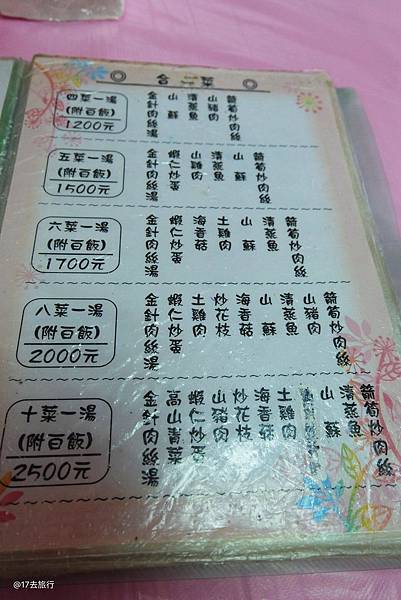 合菜
四菜一湯
(附百飯)
1200元
箭筍炒肉絲
山豬肉
清蒸魚
山蘇
金針肉絲湯
五菜一湯
(附百飯)
1500元
箭筍炒肉絲
山蘇
清蒸魚
蝦仁炒蛋
金針肉絲湯
六菜一湯
(附百飯)
1700元
箭筍炒肉絲
清蒸魚
山蘇
土雞肉
海香菇
蝦仁炒蛋
金針肉絲湯
八菜一湯
(附百飯)
2000元
箭筍炒肉絲
山豬肉
清蒸魚
山蘇
海香菇
炒花枝
土雞肉
蝦仁炒蛋
金針肉絲湯
十菜一湯
(附百飯)
2500元
箭筍炒肉絲
清蒸魚
山蘇
土雞肉
海香菇
炒花枝
山豬肉
蝦仁炒蛋
高山青菜
金針肉絲湯
@17去旅行